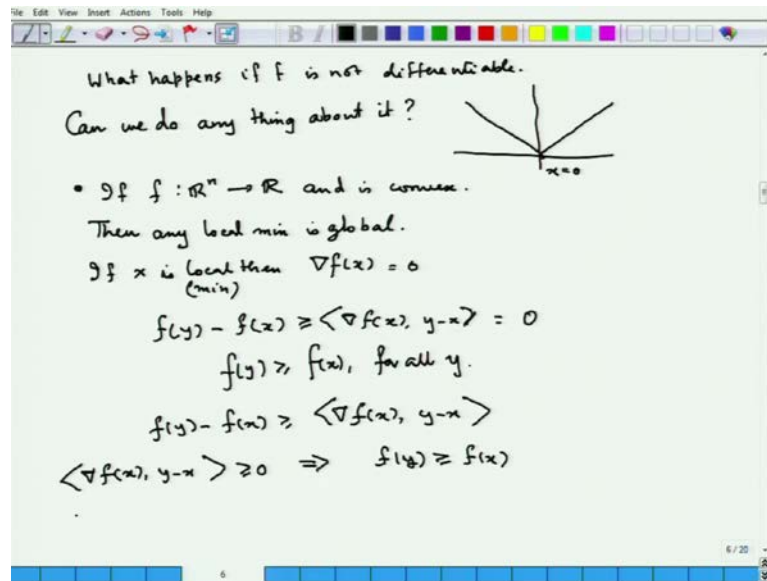 File Edit View Insert Actions Tools Help
B I
What happens if f is not differentiable.
Can we do any thing about it?
x=0
• If f : ℝⁿ → ℝ and is convex.
Then any local min is global.
If x is local then ∇f(x) = 0
(min)
f(y) - f(x) ≥ ⟨∇f(x), y-x⟩ = 0
f(y) ≥ f(x), for all y.
f(y) - f(x) ≥ ⟨∇f(x), y-x⟩
⟨∇f(x), y-x⟩ ≥ 0 ⇒ f(y) ≥ f(x)
6/20
6